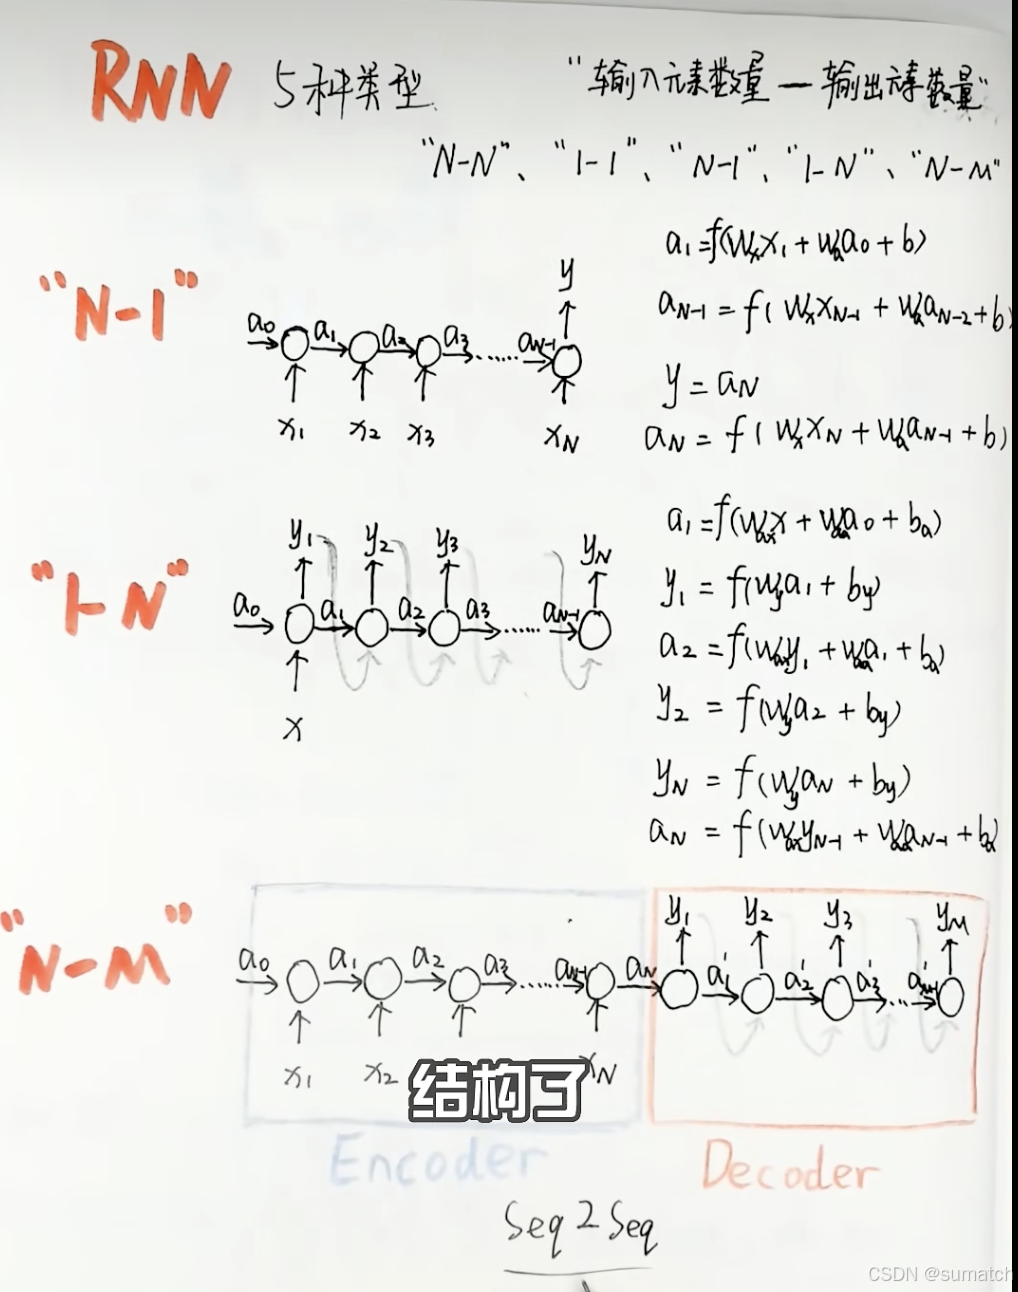 RNN 5种类型 “输入元素数量 — 输出元素数量”
“N-N”、“1-1”、“N-1”、“1-N”、“N-M”
“N-1”
a₀ a₁ a₂ a₃ ...... aN-1 y
x₁ x₂ x₃ xN
a₁=f(Wₓx₁+Wₐa₀+b)
aN-1 = f(WₓxN-1+WₐaN-2+b)
y = aN
aN = f(WₓxN+WₐaN-1+b)
“1-N”
y₁ y₂ y₃ yN
a₀ a₁ a₂ a₃ ...... aN-1
x
a₁=f(Waxx+Waaa₀+ba)
y₁ = f(Wya₁+by)
a₂=f(Waxy₁+Waaa₁+ba)
y₂ = f(Wya₂+by)
yN = f(WyaN+by)
aN = f(WaxyN-1+WaaaN-1+ba)
“N-M”
y₁ y₂ y₃ yM
a₀ a₁ a₂ a₃ ...... aN-1 aN a'₁ a'₂ a'₃ ... a'M-1
x₁ x₂ xN
结构了
Encoder Decoder
Seq2Seq
CSDN @sumatch